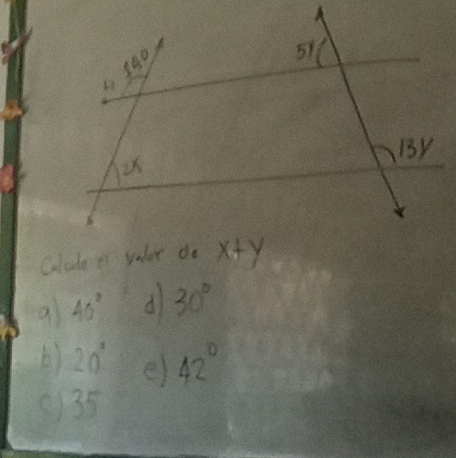 5y
13y
2x
Calcule el valor de x+y
a) 40° d) 30°
b) 20° e) 42°
c) 35